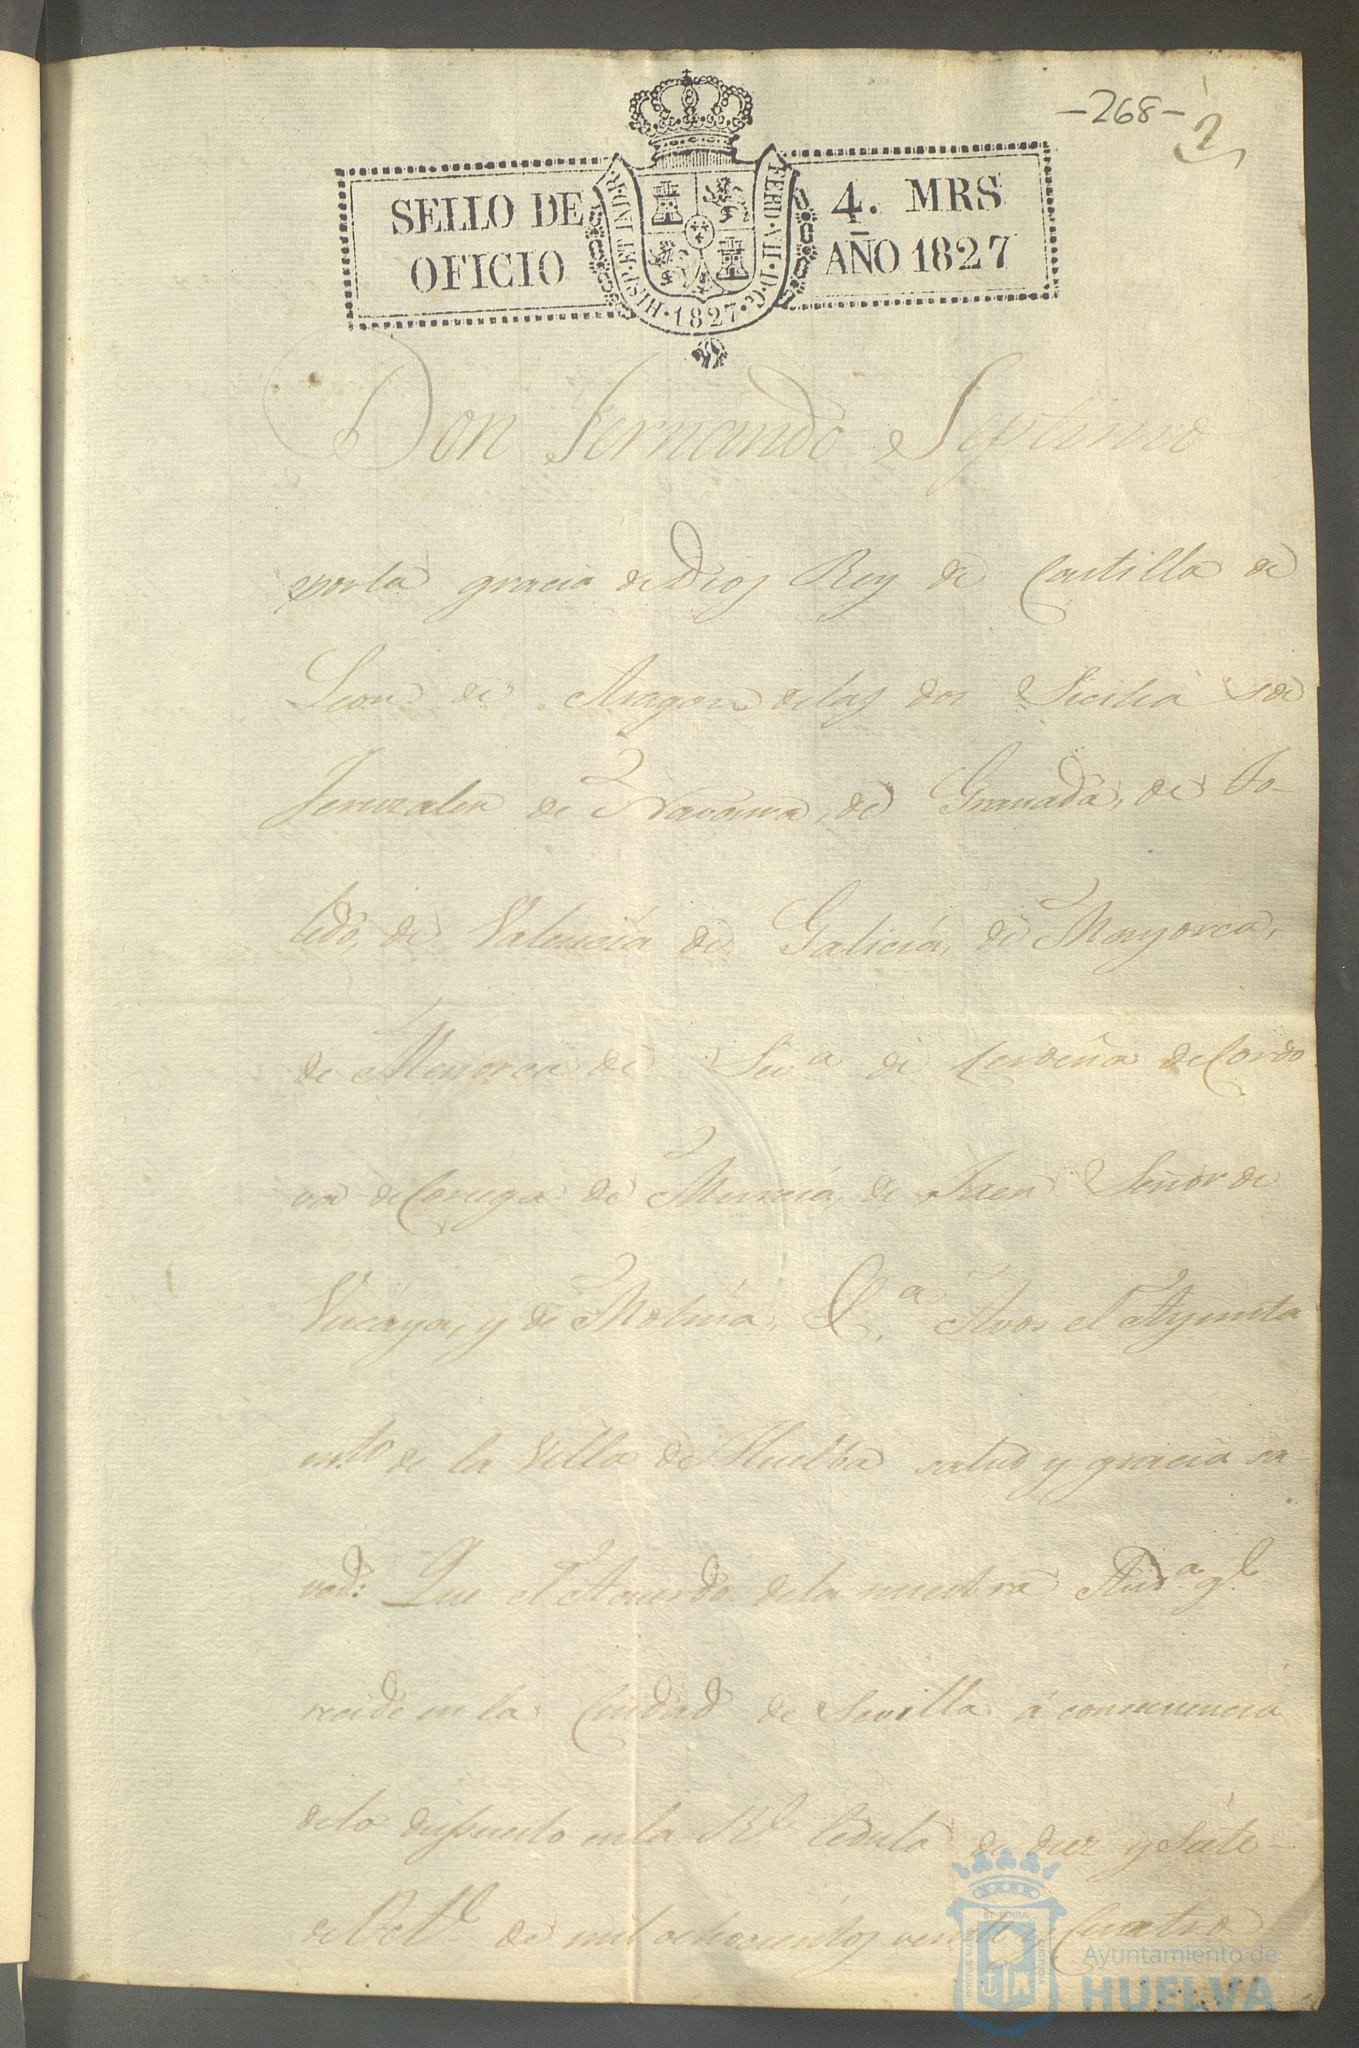 -268-
2
SELLO DE
OFICIO
HISP·ET IND·R·
FERD·VII·D·G·
·1827·
4. MRS
AÑO 1827
Don Fernando Septimo
por la gracia de Dios Rey de Castilla de
Leon de Aragon de las dos Sicilia s de
Jeruzalen de Navarra, de Granada, de To-
ledo, de Valencia de Galicia, de Mayorca,
de Menorca de Sev.a de Cerdeña de Cordo
va de Corcega de Murcia, de Jaen Señor de
Viscaya, y de Molina, &.a A vos el Ayunta
m.to de la Villa de Huelba salud y gracia sa-
ved: Que el Acuerdo de la nuestra Aud.a q.e
reside en la Ciudad de Sevilla á consecuencia
de lo dispuesto en la R.l Cedula de diez y siete
de Oct.e de mil ochocientos veinte y cuatro
Ayuntamiento de
HUELVA